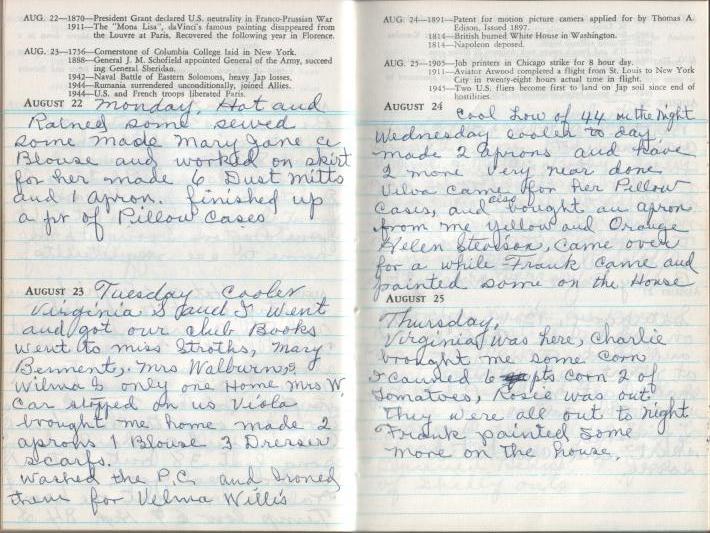 AUG. 22—1870—President Grant declared U.S. neutrality in Franco-Prussian War
1911—The "Mona Lisa", daVinci's famous painting disappeared from
the Louvre at Paris. Recovered the following year in Florence.
AUG. 23—1756—Cornerstone of Columbia College laid in New York.
1888—General J. M. Schofield appointed General of the Army, succeed
ing General Sheridan.
1942—Naval Battle of Eastern Solomons, heavy Jap losses.
1944—Rumania surrendered unconditionally, joined Allies.
1944—U.S. and French troops liberated Paris.
AUGUST 22 Monday, Hot and
Rained some sewed
some made Mary Jane a
Blouse and worked on skirt
for her made 6 Dust Mitts
and 1 apron. finished up
a pr of Pillow Cases
AUGUST 23 Tuesday cooler
Virginia S and I went
and got our club Books
went to miss Stroths, Mary
Bennent, Mrs Walburn,
Wilma G only one Home Mrs W.
Car stopped on us Viola
brought me home made 2
aprons 1 Blouse 3 Dresser
scarfs.
Washed the P.C. and Ironed
them for Velma Willis
AUG. 24—1891—Patent for motion picture camera applied for by Thomas A.
Edison. Issued 1897.
1814—British burned White House in Washington.
1814—Napoleon deposed.
AUG. 25—1905—Job printers in Chicago strike for 8 hour day.
1911—Aviator Atwood completed a flight from St. Louis to New York
City in twenty-eight hours actual time in flight.
1945—Two U.S. fliers become first to land on Jap soil since end of
hostilities.
AUGUST 24
cool Low of 44 in the night
Wednesday cooler to day
made 2 aprons and have
2 more very near done
Vilva came for her Pillow
Cases, and also bought an apron
from me yellow and Orange
Helen Stenson, came over
for a while Frank came and
painted some on the House
AUGUST 25
Thursday,
Virginia was here, Charlie
brought me some corn
I canned 6 pts corn 2 of
Tomatoes, Rosie was out.
They were all out to night
Frank painted some
more on the house.